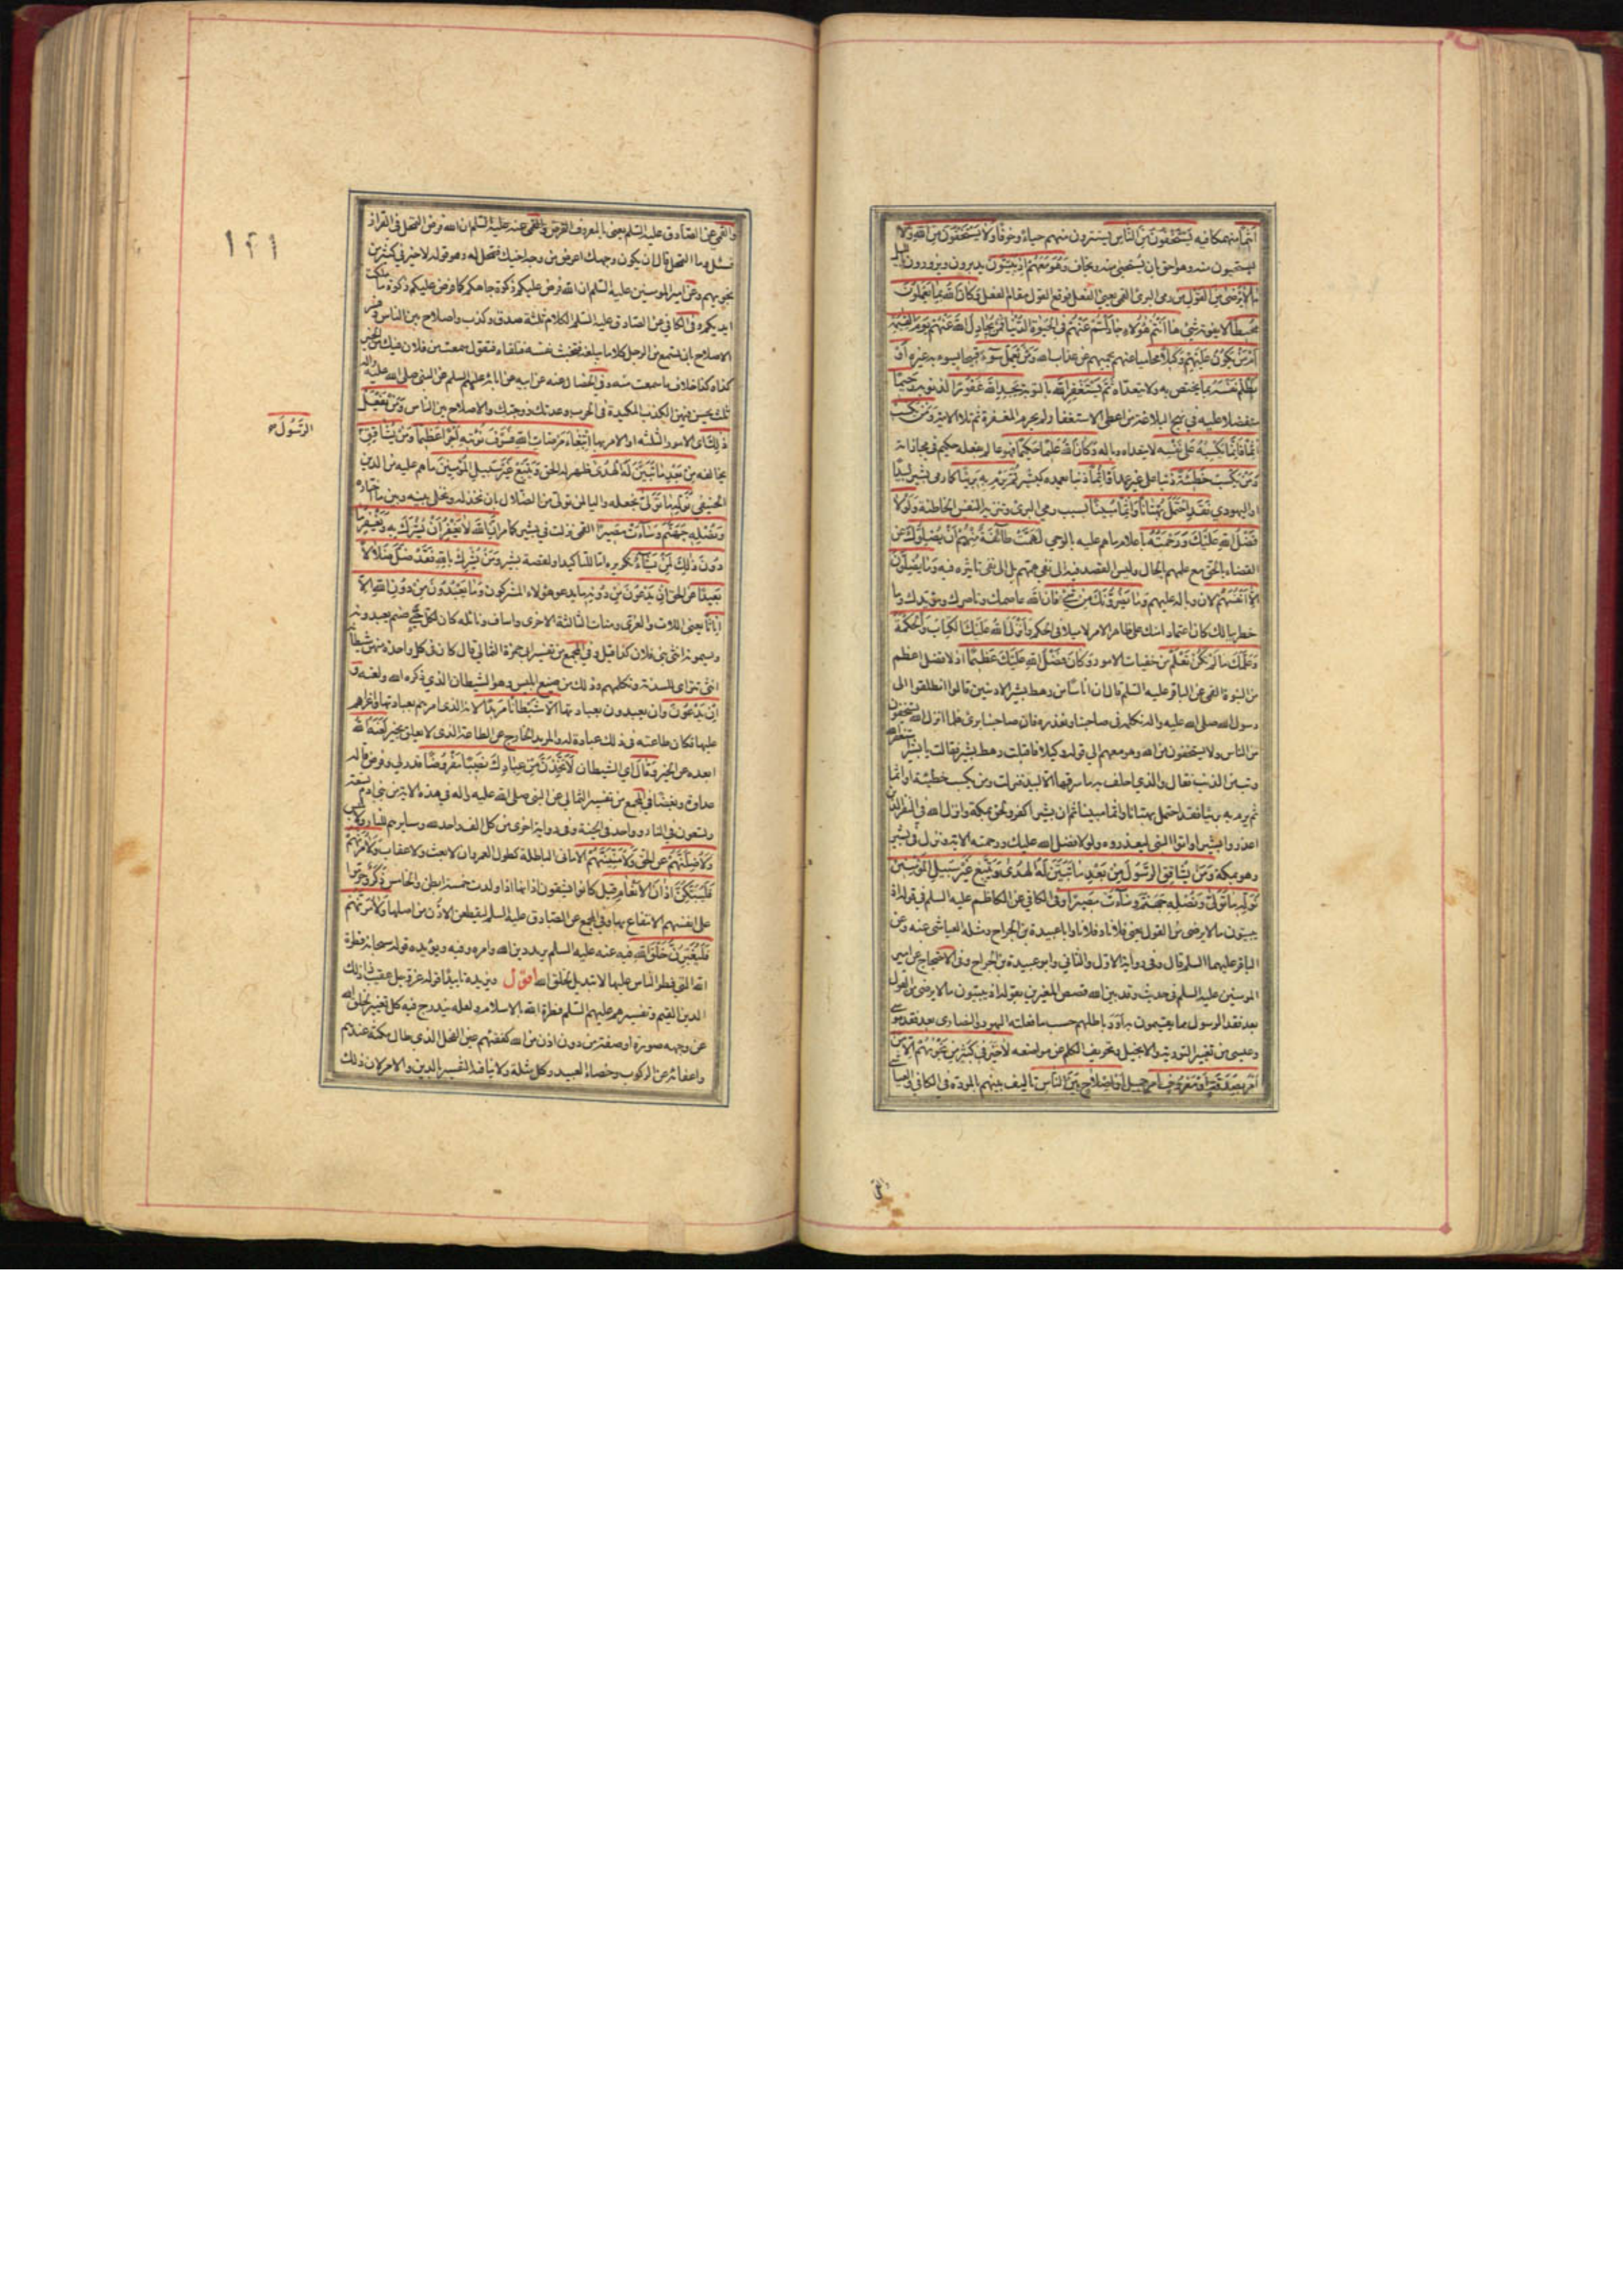 اثيما منهمكا فيه يستخفون من الناس يستترون منهم حياء وخوفا ولا يستخفون من الله ولا
يستحيون منه وهو احق بان يستحيى منه ويخاف وهو معهم اذ يبيتون يدبرون ويزورون بالليل
ما لا يرضى من القول من رمى البرئ القمي يعني الفعل فوقع القول مقام الفعل وكان الله بما يعملون
محيطا لا يفوته شئ ها انتم هؤلاء جادلتم عنهم في الحيوة الدنيا فمن يجادل الله عنهم يوم القيمة
ام من يكون عليهم وكيلا محاميا عنهم يحميهم عن عذاب الله ومن يعمل سوء قبيحا يسوء به غيره او
يظلم نفسه بما يختص به ولا يتعداه ثم يستغفر الله بالتوبة يجد الله غفورا لذنوبه رحيما
متفضلا عليه في نهج البلاغة من اعطى الاستغفار لم يحرم المغفرة ثم تلا الاية ومن يكسب
اثما فانما يكسبه على نفسه لا يتعداه وباله وكان الله عليما حكيما فهو عالم بفعله حكيم في مجازاته
ومن يكسب خطيئة ذنبا على غير عمد او اثما ذنبا تعمده كبشر ثم يرم به بريئا كما رمى بشير لبيدا
او اليهودي فقد احتمل بهتانا واثما مبينا بسبب رمي البرئ وتنزيه النفس الخاطئة ولولا
فضل الله عليك ورحمته باعلام ما هم عليه بالوحي لهمت طائفة منهم ان يضلوك عن
القضاء بالحق مع علمهم بالحال وليس القصد فيه الى نفي همهم بل الى نفي تاثيره فيه وما يضلون
الا انفسهم لان وباله عليهم وما يضرونك من شئ فان الله عاصمك وناصرك ومؤيدك وما
خطر ببالك كان اعتمادا منك على ظاهر الامر لا ميلا في الحكم وانزل الله عليك الكتاب والحكمة
وعلمك ما لم تكن تعلم من خفيات الامور وكان فضل الله عليك عظيما اذ لا فضل اعظم
من النبوة القمي عن الباقر عليه السلم قال ان اناسا من رهط بشير الادنين قالوا انطلقوا الى
رسول الله صلى الله عليه واله نكلمه في صاحبنا ونعذره فان صاحبنا برئ فلما انزل الله يستخفون
من الناس ولا يستخفون من الله وهو معهم الى قوله وكيلا فاقبلت رهط بشير فقالت يا بشير استغفر الله
وتب من الذنب فقال والذي احلف به ما سرقها الا لبيد فنزلت ومن يكسب خطيئة او اثما
ثم يرم به بريئا فقد احتمل بهتانا واثما مبينا ثم ان بشيرا كفر ولحق بمكة وانزل الله في النفر الذين
اعذروا بشيرا واتوا النبي ليعذروه ولولا فضل الله عليك ورحمته الاية ونزل في بشير
وهو بمكة ومن يشاقق الرسول من بعد ما تبين له الهدى ويتبع غير سبيل المؤمنين
نوله ما تولى ونصله جهنم وساءت مصيرا وفي الكافي عن الكاظم عليه السلم في قوله اذ
يبيتون ما لا يرضى من القول يعني فلانا وفلانا وابا عبيدة بن الجراح ومثله العياشي عنه وعن
الباقر عليهما السلم قال وفي رواية الاول والثاني وابو عبيدة بن الجراح وفي الاحتجاج عن امير
المؤمنين عليه السلم في حديث وقد بين الله قصص المغيرين بقوله اذ يبيتون ما لا يرضى من القول
بعد فقد الرسول مما يقيمون به اود باطلهم حسب ما فعلته اليهود والنصارى بعد فقد موسى
وعيسى من تغيير التورية والانجيل وتحريف الكلم عن مواضعه لا خير في كثير من نجويهم الا من
امر بصدقة او معروف امر جميل او اصلاح بين الناس تاليف بينهم بالمودة في الكافي والعياشي
والقمي
١٢١
والقمي عن الصادق عليه السلم يعني بالمعروف القرض والقمي عنه عليه السلم ان الله فرض التحمل في القران
فسئل وما التحمل قال ان يكون وجهك اعرض من وجه اخيك فتحمل له وهو قوله لا خير في كثير من
نجويهم وعن امير المؤمنين عليه السلم ان الله فرض عليكم زكوة جاهكم كما فرض عليكم زكوة ما ملكت
ايديكم وفي الكافي عن الصادق عليه السلم الكلام ثلثة صدق وكذب واصلاح بين الناس وفسر
الاصلاح بان تسمع من الرجل كلاما يبلغه فتخبث نفسه فتلقاه فتقول سمعت من فلان فيك من الخير
كذا وكذا خلاف ما سمعت منه وفي الخصال عنه عن ابيه عن ابائه عليهم السلم عن النبي صلى الله عليه واله
ثلث يحسن فيهن الكذب المكيدة في الحرب وعدتك زوجتك والاصلاح بين الناس ومن يفعل
ذلك اي الامور الثلثة او الامر بها ابتغاء مرضات الله فسوف نؤتيه اجرا عظيما ومن يشاقق
الرسول
يخالفه من بعد ما تبين له الهدى ظهر له الحق ويتبع غير سبيل المؤمنين ما هم عليه من الدين
الحنيفي نوله ما تولى نجعله واليا لمن تولى من الضلال بان نخذله ونخلي بينه وبين ما اختاره
ونصله جهنم وساءت مصيرا القمي نزلت في بشير كما مر ان الله لا يغفر ان يشرك به ويغفر ما
دون ذلك لمن يشاء تكريره اما للتاكيد او لقصة بشير ومن يشرك بالله فقد ضل ضلالا
بعيدا عن الحق ان يدعون من دونه ما يدعو هؤلاء المشركون وما يعبدون من دون الله الا
اناثا يعني اللات والعزى ومنات الثالثة الاخرى واساف ونائلة كان لكل حي صنم يعبدونه
ويسمونه انثى بني فلان كذا قيل وفي المجمع عن تفسير ابي حمزة الثمالي قال كان في كل واحدة منهن شيطان
انثى تتراءى للسدنة وتكلمهم وذلك من صنيع ابليس وهو الشيطان الذي ذكره الله ولعنه و
ان يدعون وان يعبدون بعبادتها الا شيطانا مريدا لانه الذي امرهم بعبادتها واغراهم
عليها فكان طاعته في ذلك عبادة له والمريد الخارج عن الطاعة الذي لا يعلق بخير لعنه الله
ابعده عن الخير وقال اي الشيطان لاتخذن من عبادك نصيبا مفروضا قدر لي وفرض قاله
عداوة وبغضا في المجمع عن تفسير الثمالي عن النبي صلى الله عليه واله في هذه الاية من بني ادم تسعة
وتسعون في النار وواحد في الجنة وفي رواية اخرى من كل الف واحد لله وسايرهم للنار ولابليس
ولاضلنهم عن الحق ولامنينهم الاماني الباطلة كطول العمر وان لا بعث ولا عقاب ولامرنهم
فليبتكن اذان الانعام قيل كانوا يشقون اذانها اذا ولدت خمسة ابطن والخامس ذكر وحرموا
على انفسهم الانتفاع بها وفي المجمع عن الصادق عليه السلم ليقطعن الاذن من اصلها ولامرنهم
فليغيرن خلق الله فيه عنه عليه السلم يريد دين الله وامره وفيه ويؤيده قوله سبحانه فطرة
الله التي فطر الناس عليها لا تبديل لخلق الله اقول ويزيده تاييدا قوله عز وجل عقيب ذلك ذلك
الدين القيم وتفسيرهم عليهم السلم فطرة الله بالاسلام ولعله يندرج فيه كل تغيير لخلق الله
عن وجهه صورة او صفة من دون اذن من الله كفقئهم عين الفحل الذي طال مكثه عندهم
واعفائه عن الركوب وخصاء العبيد وكل مثلة ولا ينافيه التفسير بالدين والامر لان ذلك